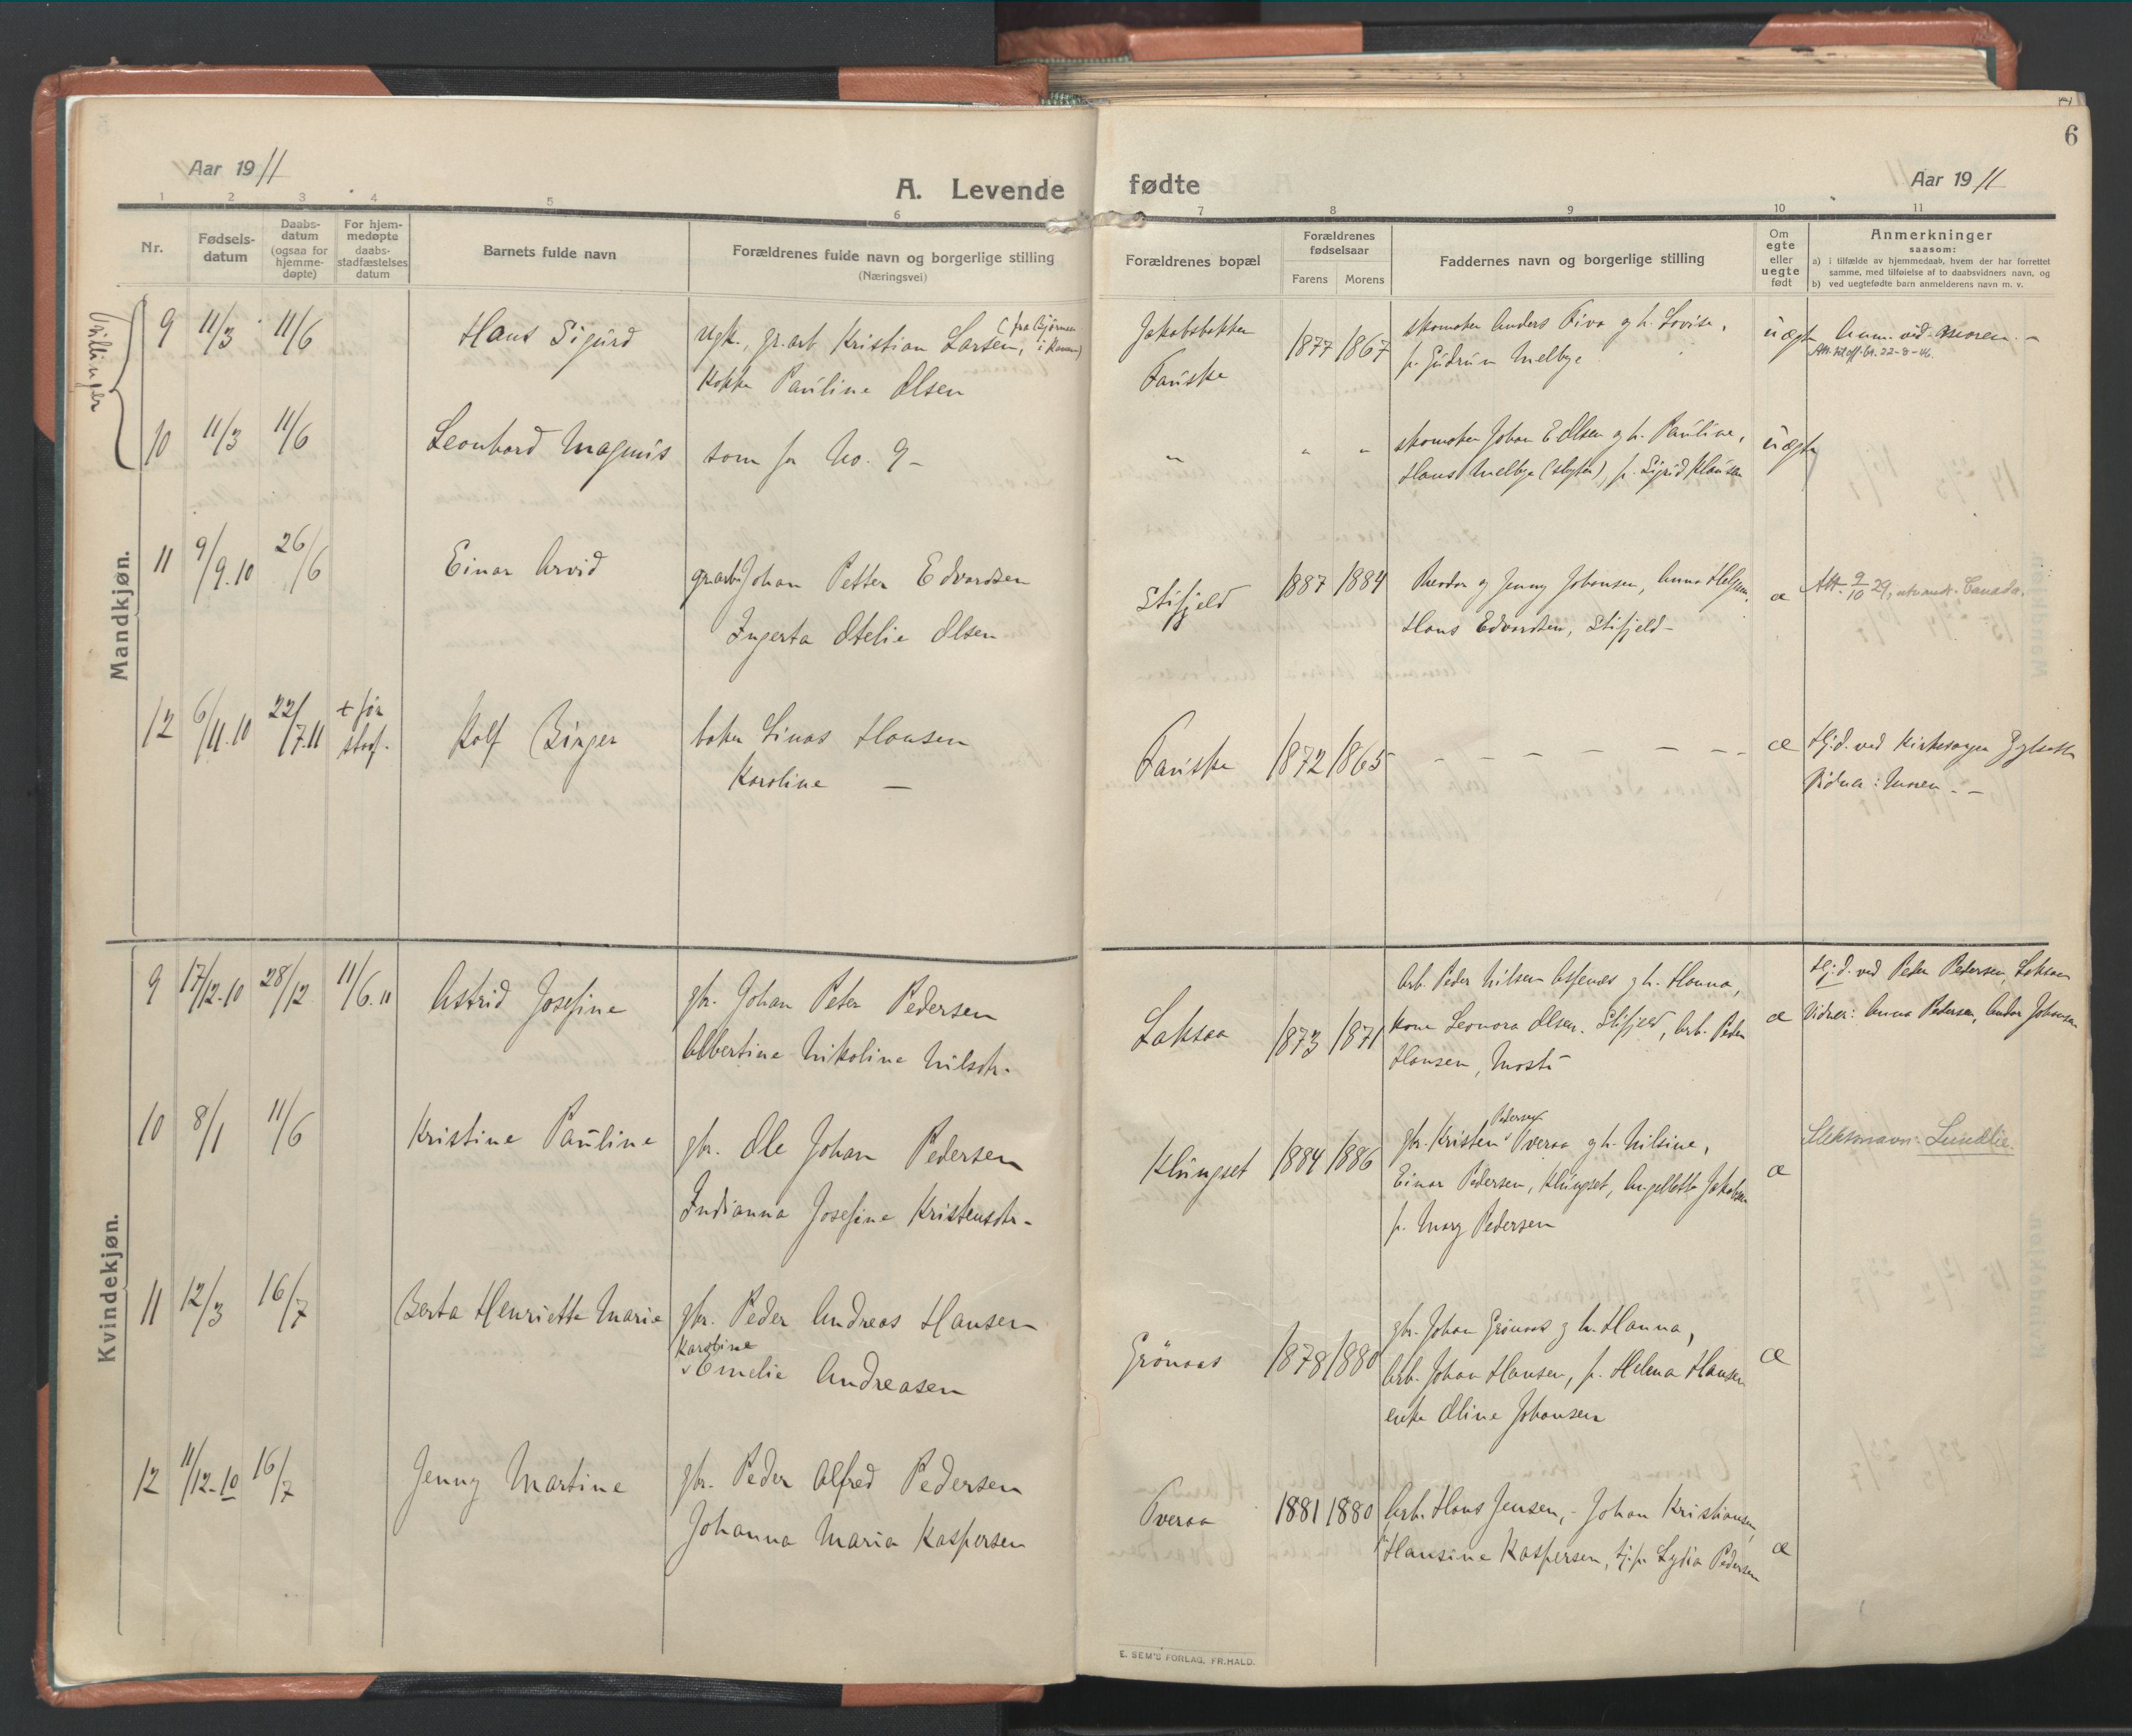 6
Aar 1911
A. Levende fødte
Aar 1911
1 2 3 4 5 6 7 8 9 10 11
Nr.
Fødsels-
datum
Daabs-
datum
(ogsaa for
hjemme-
døpte)
For hjem-
medøpte
daabs-
stadfæstelses
datum
Barnets fulde navn
Forældrenes fulde navn og borgerlige stilling
(Næringsvei)
Forældrenes bopæl
Forældrenes
fødselsaar
Farens Morens
Faddernes navn og borgerlige stilling
Om
egte
eller
uegte
født
Anmerkninger
saasom:
a) i tilfælde av hjemmedaab, hvem der har forrettet
samme, med tilføielse af to daabsvidners navn, og
b) ved uegtefødte barn anmelderens navn m. v.
Mandkjøn.
Tvillinger
9 11/3 11/6
Hans Sigurd
ugk., gr.arb. Kristian Larsen,
Kokke Pauline Olsen
Jakobsbakken
Fauske
1877 1867
skomaker Anders og h. Lovise,
p. Gudrun Melbye
uægte
Anm. ved moren. -
22-8-46.
10 11/3 11/6
Leonhard Magnus
som for No. 9 -
" " "
skomaker Johan E Olsen og h. Pauline,
Hans Melbye (slagter), p. Sigrid Klausen
uægte
11 9/9.10 26/6
Einar Arvid
gr.arb. Johan Petter Edvardsen
Ingerta Otelie Olsen
Stifjeld
1887 1884
Teodor og Jenny Johansen, Anna
Hans Edvardsen, Stifjeld -
æ
Att. 9/10 29, utvandr. Canada.
12 6/11.10 22/7.11 + før
stadf.
Rolf Birger
baker Linas Hansen
Karoline -
Fauske
1872 1865
- - - - - -
æ
Hj.d. ved kirkesanger
Vidner: Moren. -
Kvindekjøn.
9 17/12-10 28/12 11/6.11
Astrid Josefine
gbr. Johan Peter Pedersen
Albertine Nikoline Nilsdtr.
Laksaa
1873 1871
Arb. Peder Nilsen og h. Hanna,
kone Leonora Olsen, Stifjeld, Arb. Peder
Hansen, Mostu
æ
Hj.d. ved Peder Pedersen, Laksaa
Vidner: Anna Pedersen, Johansen
10 8/1 11/6
Kristine Pauline
gbr. Ole Johan Pedersen
Indianna Josefine Kristensdtr -
Klungset
1884 1886
Pedersen
gbr. Kristen Tveraa og h. Nilsine,
Einar Pedersen, Klungset, Angellette Jakobsen
p. Mary Pedersen
æ
Slektsnavn: Lundlie.
11 12/3 16/7
Berta Henriette Marie
gbr. Peder Andreas Hansen
Karoline
Emelie Andreasen
Grönaas
1878 1880
gbr. Johan Grönaas og h. Hanna,
Arb. Johan Hansen, p. Helena Hansen
enke Oline Johansen
æ
12 11/12-10 16/7
Jenny Martine
gbr. Peder Alfred Pedersen
Johanna Maria Kaspersen
Tveraa
1881 1880
Arb. Hans Jensen, - Johan Kristiansen,
Hansine Kaspersen, tj.p. Lydia Pedersen
æ
E. SEM'S FORLAG, FR.HALD.